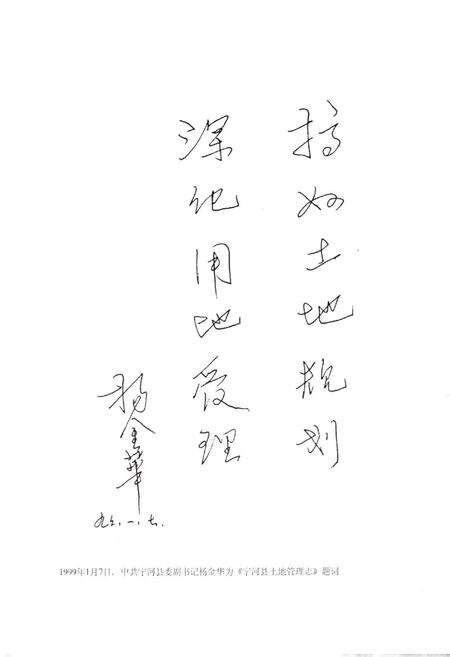 搞好土地规划
深化用地管理
杨金华
九九.一.七.
1999年1月7日，中共宁河县委副书记杨金华为《宁河县土地管理志》题词